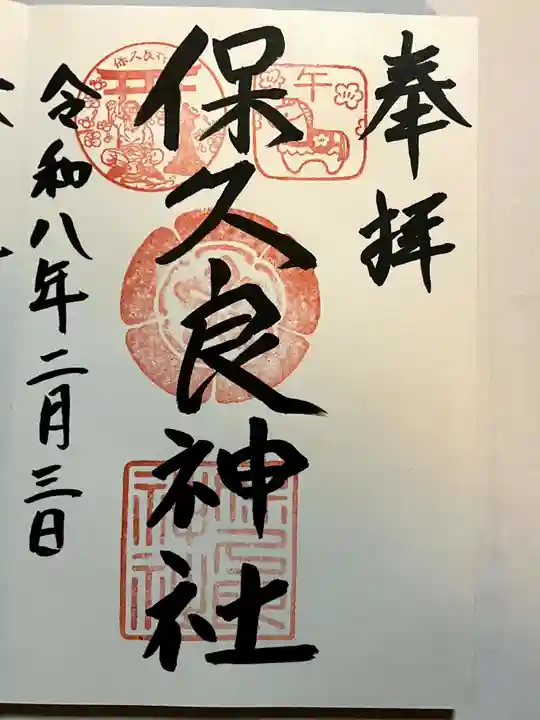 奉拝
午
保久良神社
保久良神社
令和八年二月三日